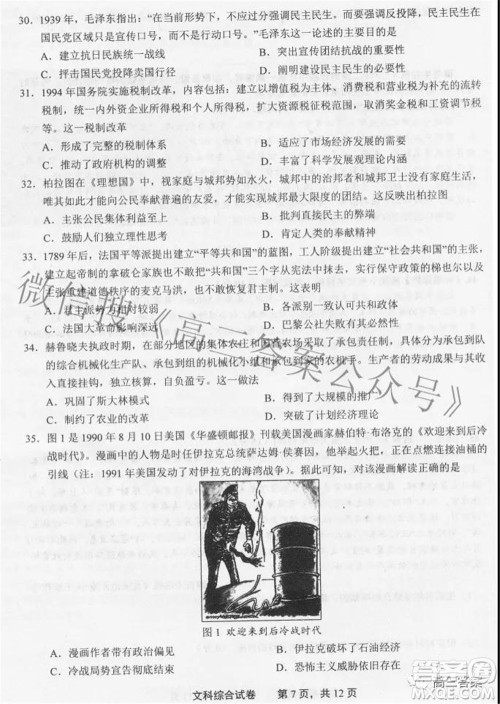 30. 1939 年，毛泽东指出：“目前形势下，不应过分强调民主民生。而要强调反投降，民主民生在
国民党区域只是宣传口号，而不是行动口号。”毛泽东这一论述的目的是
A．建立抗日民族统一战线 B．巩固新民主主义政权
C．抨击国民党投降卖国行径 D．阐明建设民主政治思想
31. 1994 年国务院实施税制改革，内容包括：建立以增值税为主体、消费税和营业税为补充的流转
税制，统一内外资企业所得税和个人所得税，扩大资源税征税范围，取消奖金税和工资调节
税等。这一税制改革
A．形成了完整的税制体系 B．适应了市场经济发展的需要
C．推动了政府机构的调整 D．丰富了科学发展观理论内涵
32. 柏拉图在《理想国》中，视家庭与城邦势如水火，城邦中的治者和城邦卫士没有家庭生活，
唯其如此才能使他们对人民奉献普遍的友爱，才能实现城邦最大限度的团结。这反映出柏拉图
A．主张公民主动奉献生命 B．批判民主执政的弊端
C．鼓励人们独立理性思考 D．肯定人类的奉献精神
33. 1789 年后，法国平等派提出建立“平等共和国”的蓝图，工人阶级提出建立“社会共和国”，
建立起帝制的拿破仑家族也不敢贸然把“共和国”三个字从宪法中抹掉，甚至连极端保守、
主张重建道德秩序的麦克马洪，也不敢恢复君主制度。这表明
A．君主派势力相对较弱 B．各派别一致认可共和政体
C．法国大革命影响深远 D．巴黎公社失败具有必然性
34. 赫鲁晓夫执政时期，在部分地区的集体农庄和国营农场采用了新的承包制形式，出现了承包到组
的综合机械化生产队、承包到组的机械化小组和承包到家的农机手。生产者的劳动与其收入
直接挂钩，独立核算，自负盈亏。这一做法
A．巩固了斯大林模式 B．得到了大规模的推广
C．制约了农业的改革 D．突破了计划经济理论
35. 图 1 是 1990 年 8 月 10 日美国《华盛顿邮报》刊载美国漫画家赫伯特·布洛克的《欢迎来到后冷
战时代》。漫画中的人物是时任伊拉克总统萨达姆·侯赛因，他举起火把，正在点燃连接油桶的
引线（注：1991 年美国发动了对伊拉克的海湾战争）。据此可知，对该漫画解读正确的是
图 1 欢迎来到后冷战时代
A．漫画作者带有政治偏见 B．伊拉克破坏了石油经济
C．冷战局势宣告彻底结束 D．恐怖主义的威胁依然存在
文科综合试卷 第 7 页，共 12 页
微信搜《高三答案公众号》
高三答案